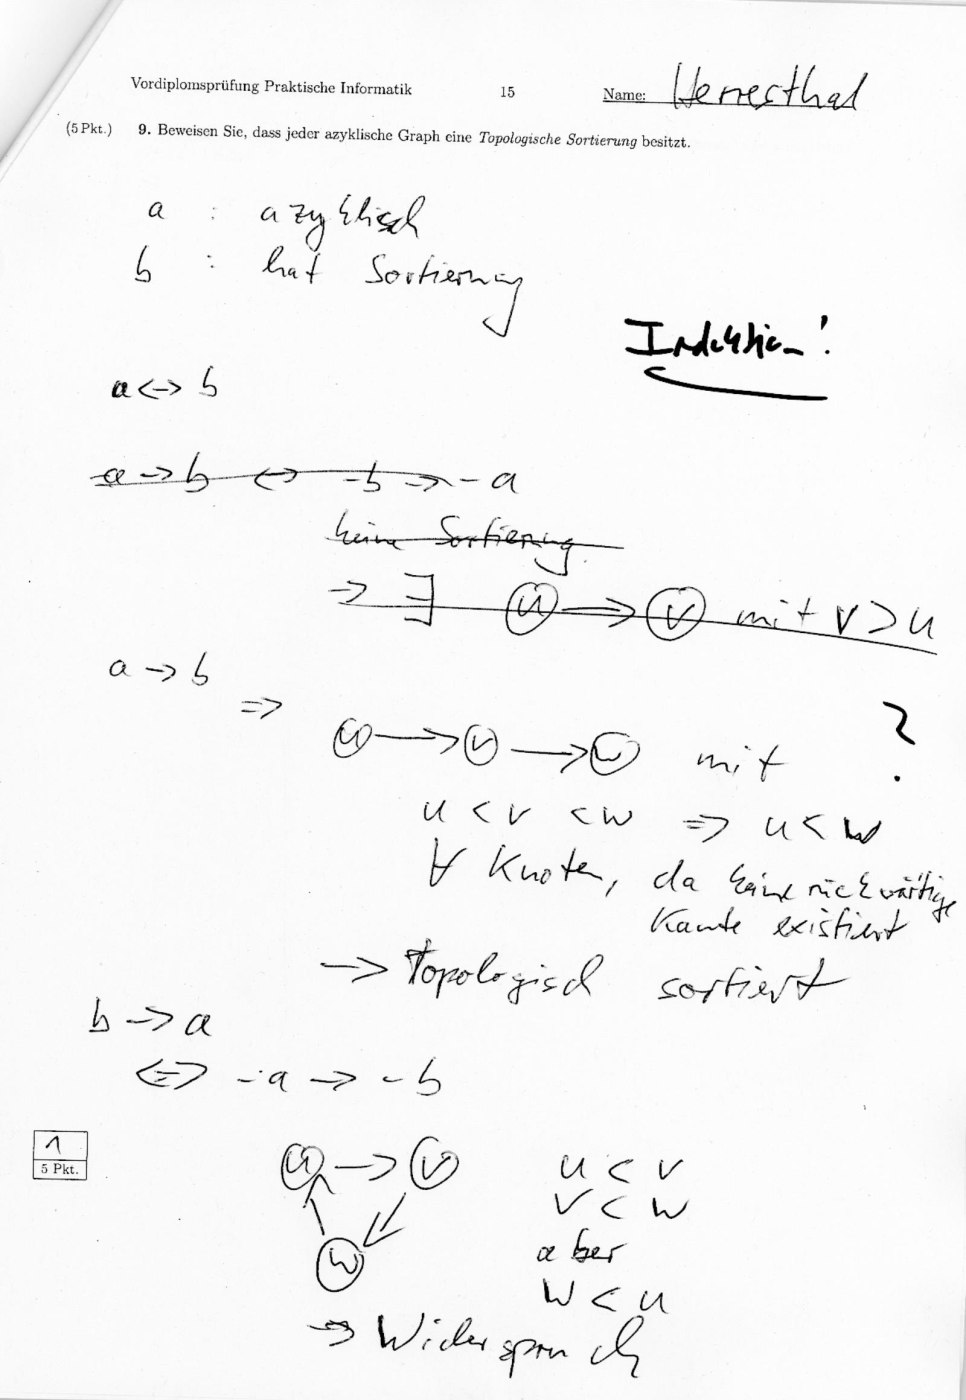 Vordiplomsprüfung Praktische Informatik 15 Name: Herresthal
(5 Pkt.) 9. Beweisen Sie, dass jeder azyklische Graph eine Topologische Sortierung besitzt.
a : azyklisch
b : hat Sortierung
Induktion!
a <-> b
a -> b <=> -b -> -a
keine Sortierung
-> ∃ u -> v mit v > u
a -> b
=> u -> v -> w mit ?
u < v < w => u < w
∀ Knoten, da keine rückwärtige
Kante existiert
-> Topologisch sortiert
b -> a
<=> -a -> -b
1
5 Pkt.
u -> v u < v
v < w
w aber
w < u
-> Widerspruch